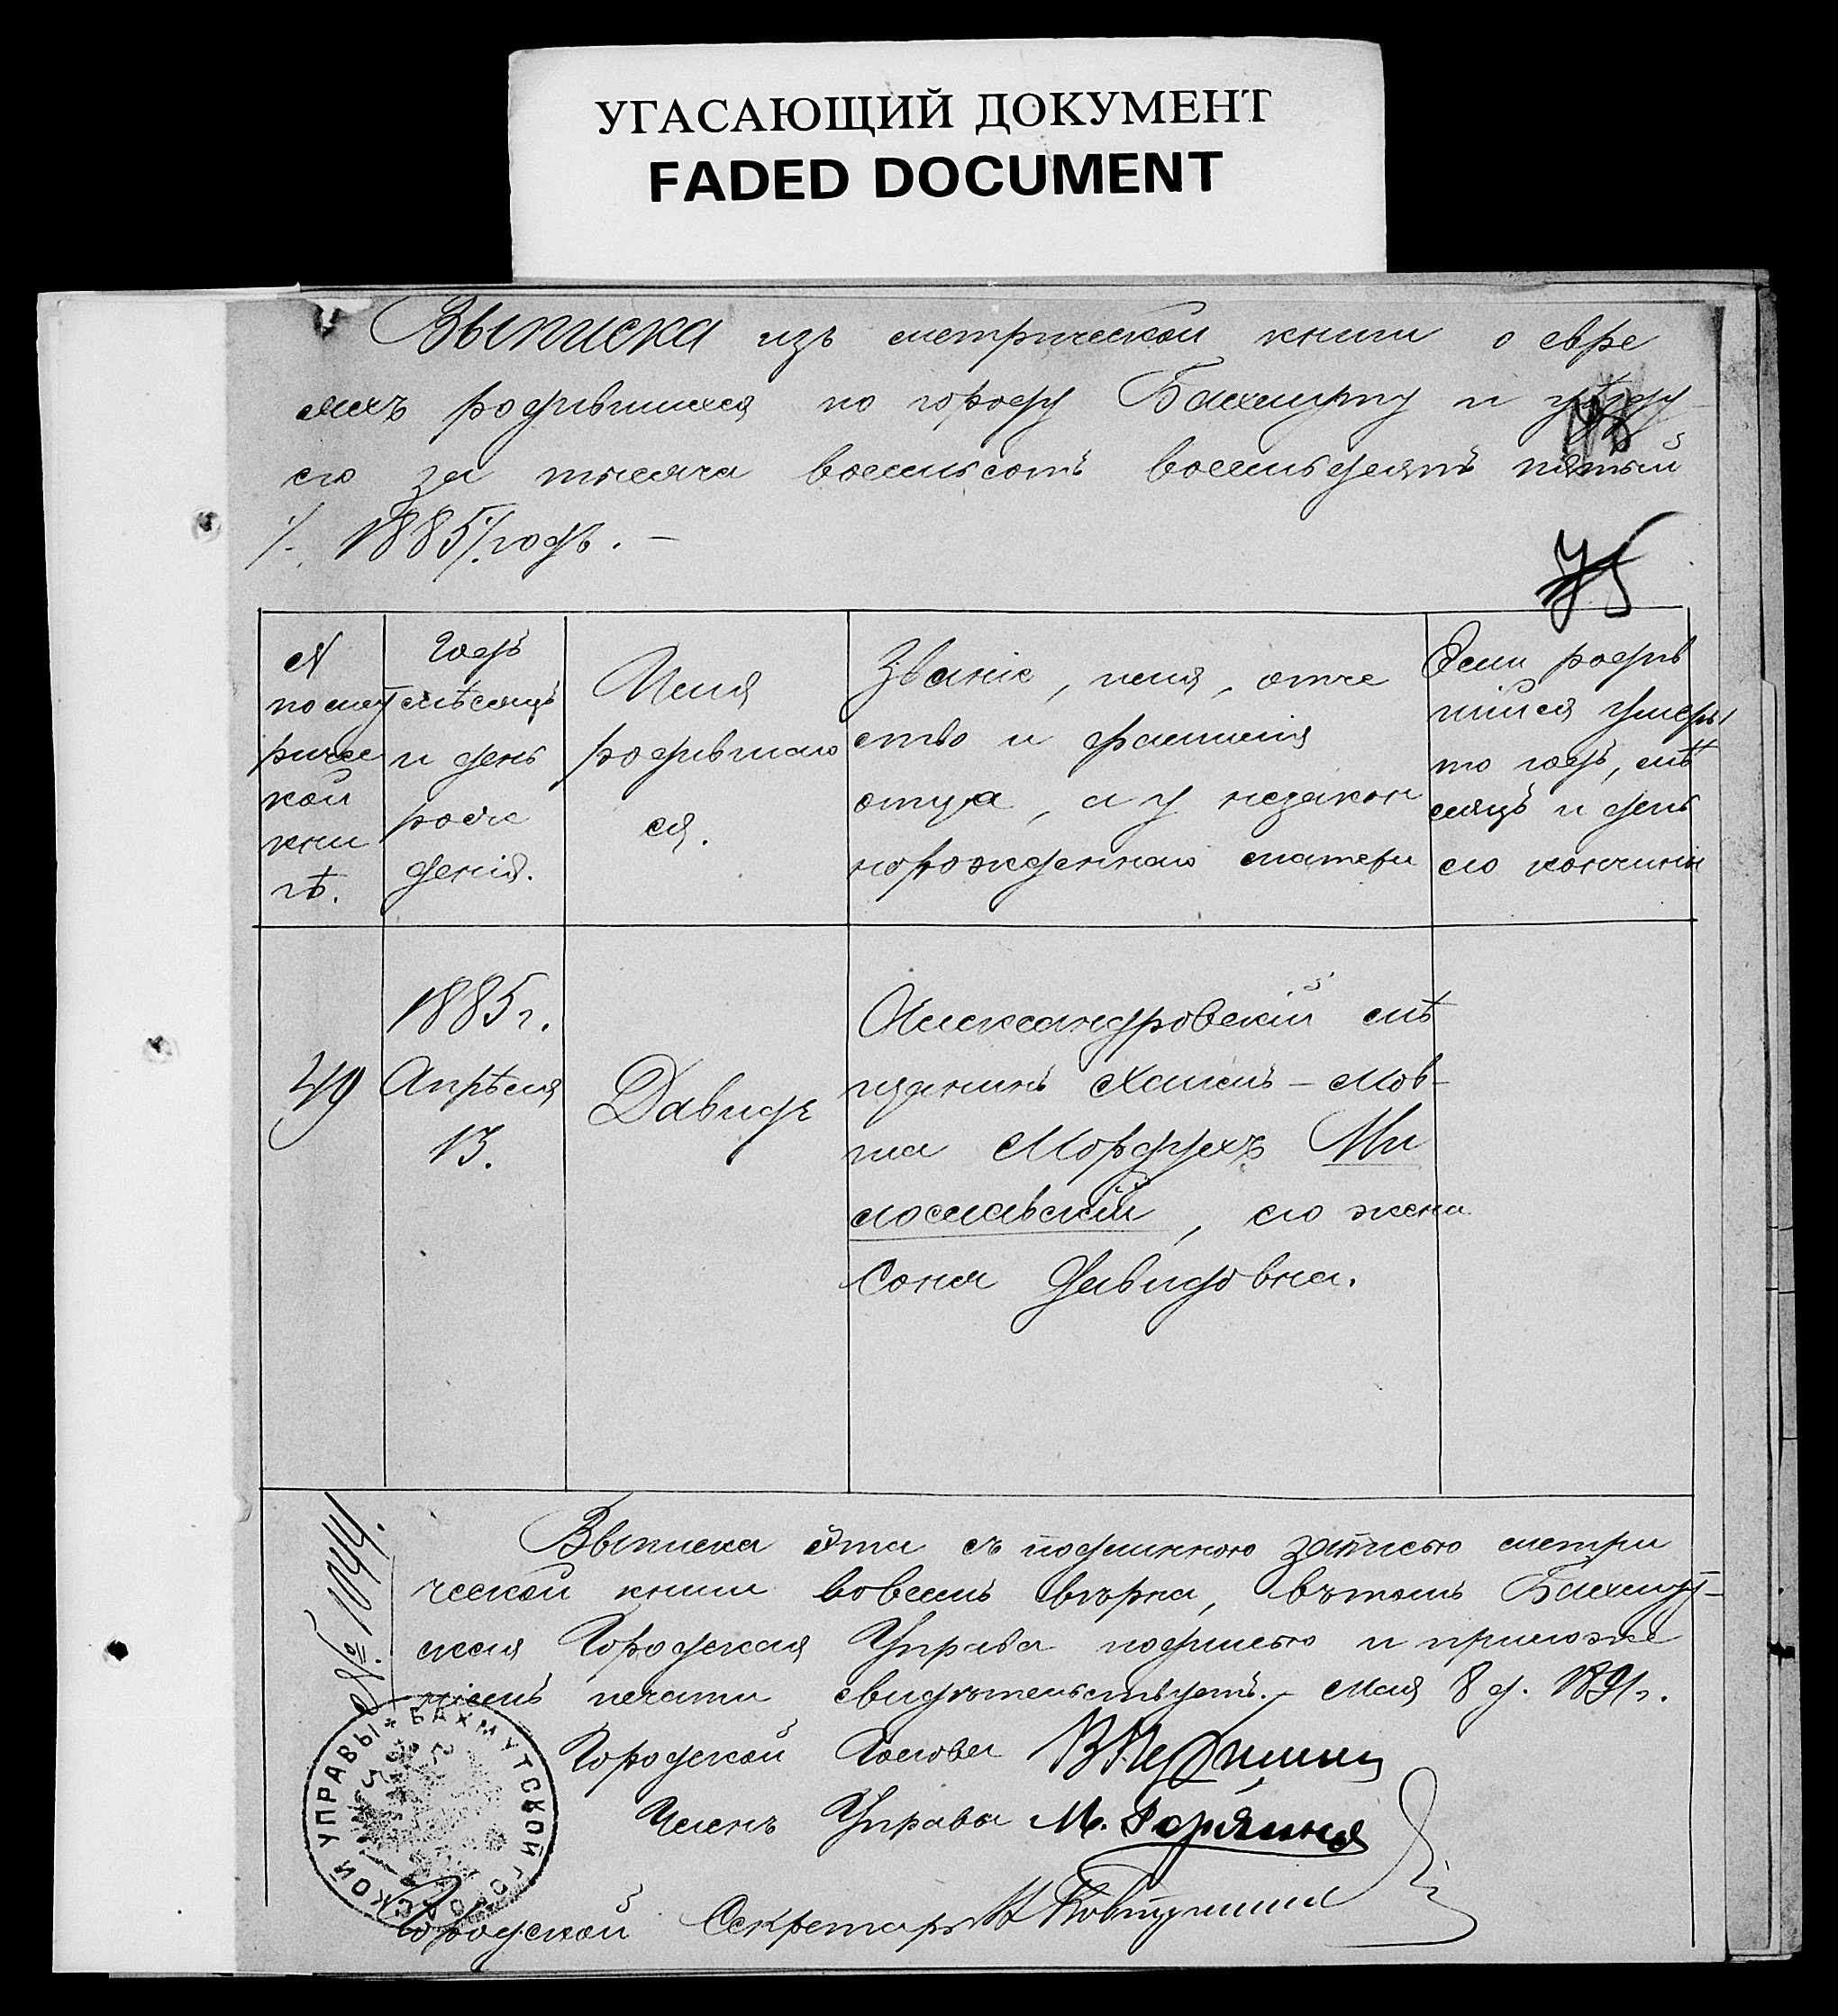 УГАСАЮЩИЙ ДОКУМЕНТ
FADED DOCUMENT
Выписка изъ метрической книги о евре
яхъ родившихся по городу Бахмуту и уѣзду
его за тысяча восемьсотъ восемьдесятъ пятый
/. 1885 /. годъ. —
75
№
по мет
риче
кой
кни
гѣ.
Годъ
мѣсяцъ
и день
рож
денія.
Имя
родившаго
ся.
Званіе, имя, отче
ство и фамилія
отца, а у незакон
норожденнаго матери
Если родив
шійся умеръ,
то годъ, мѣ
сяцъ и день
его кончины
49
1885 г.
Апрѣля
13.
Давидъ
Александровскій мѣ
щанинъ Хаимъ-Мов-
ша Мордухъ Ми
лославскій, его жена
Соня Давидовна.
№ 1044.
Выписка эта съ подлинною записью метри
ческой книги вовсемъ вѣрна, въ томъ Бахмут-
ская Городская Управа подписью и приложе
ніемъ печати свидѣтельствуетъ. – Мая 8 д. 1891 г.
Городской Голова
Членъ Управы М.
Городской Секретарь
БАХМУТСКОЙ ГОРОДСКОЙ УПРАВЫ